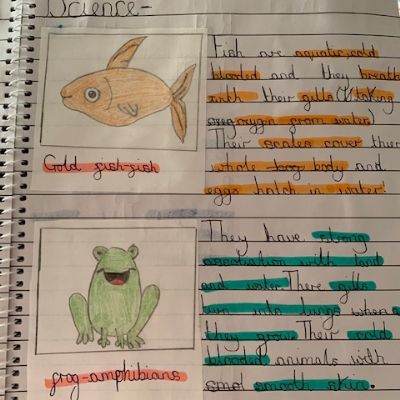 Science-
Fish are aquatic, cold
blooded and they breath
with their gills (taking
oxygen from water)
Their scales cover their
whole body and
eggs hatch in water!
Gold fish-fish
They have strong
association with land
and water. There gills
turn into lungs when
they grow. Their cold
blooded animals with
smooth skin.
frog-amphibians